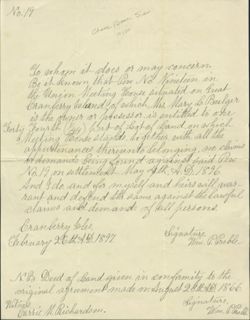 No. 19
To whom it does or may concern
Be it known that Pew No. Nineteen in
the Union Meeting House situated on Great
Cranberry Island of which Mrs Mary E. Bulger
is the owner or possessor is entitled to one
Forty Fourth (1/44) part of Lot of Land on which
Meeting House stands, together with all the
appurtenances thereunto belonging, no claims
or demands being found against said Pew
No. 19 on settlement May 4th A.D. 1896
And I do and for myself and heirs will war-
rant and defend the same against the lawful
claims and demands of all persons.
Cranberry Isle
February 26th A.D. 1897
Signature
Wm. P. Preble
N.B. Deed of Land given in conformity to the
original agreement made on August A.D. 1866
Witness
Signature
Carrie M. Richardson
Wm. P. Preble